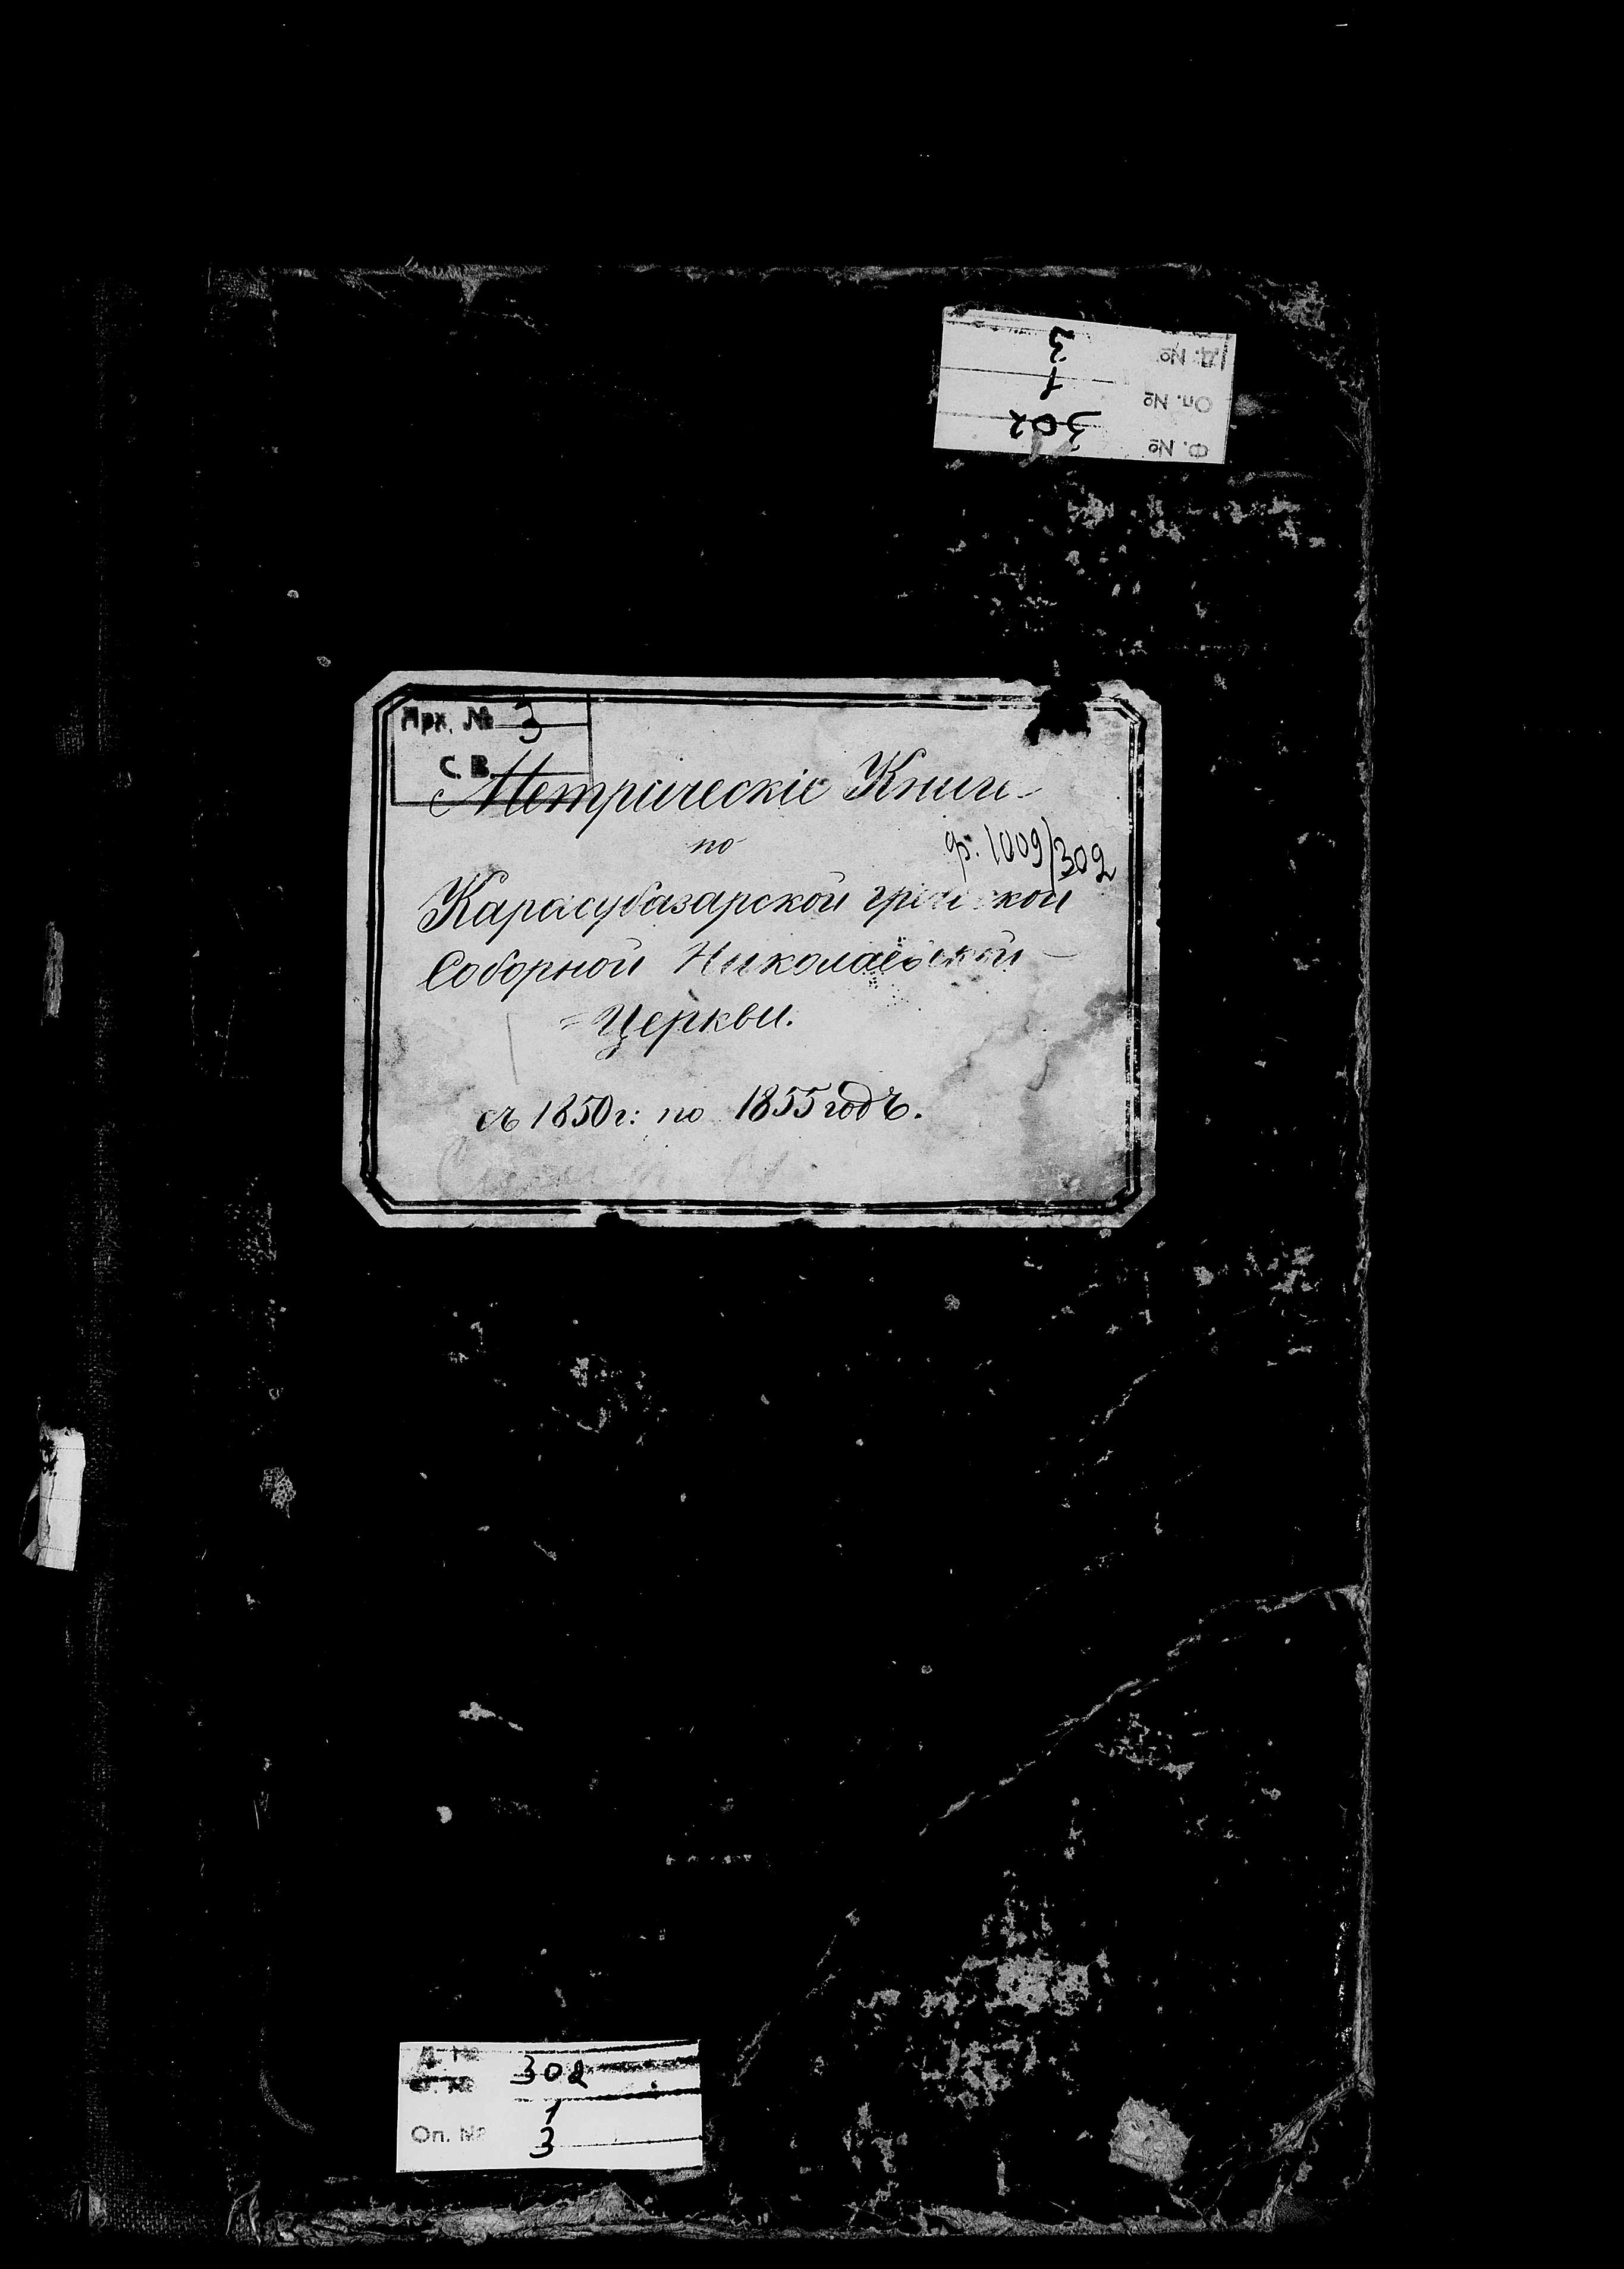 Д. № 3
Оп. № 1
Ф. № 302
Арх. № 3
С. В.
Метрическіе Книги
по
ф. 1009/302
Карасубазарской греческой
Соборной Николаевской
Церкви.
съ 1850 г: по 1855 годъ.
Д. №
Ф. № 302
1
Оп. № 3